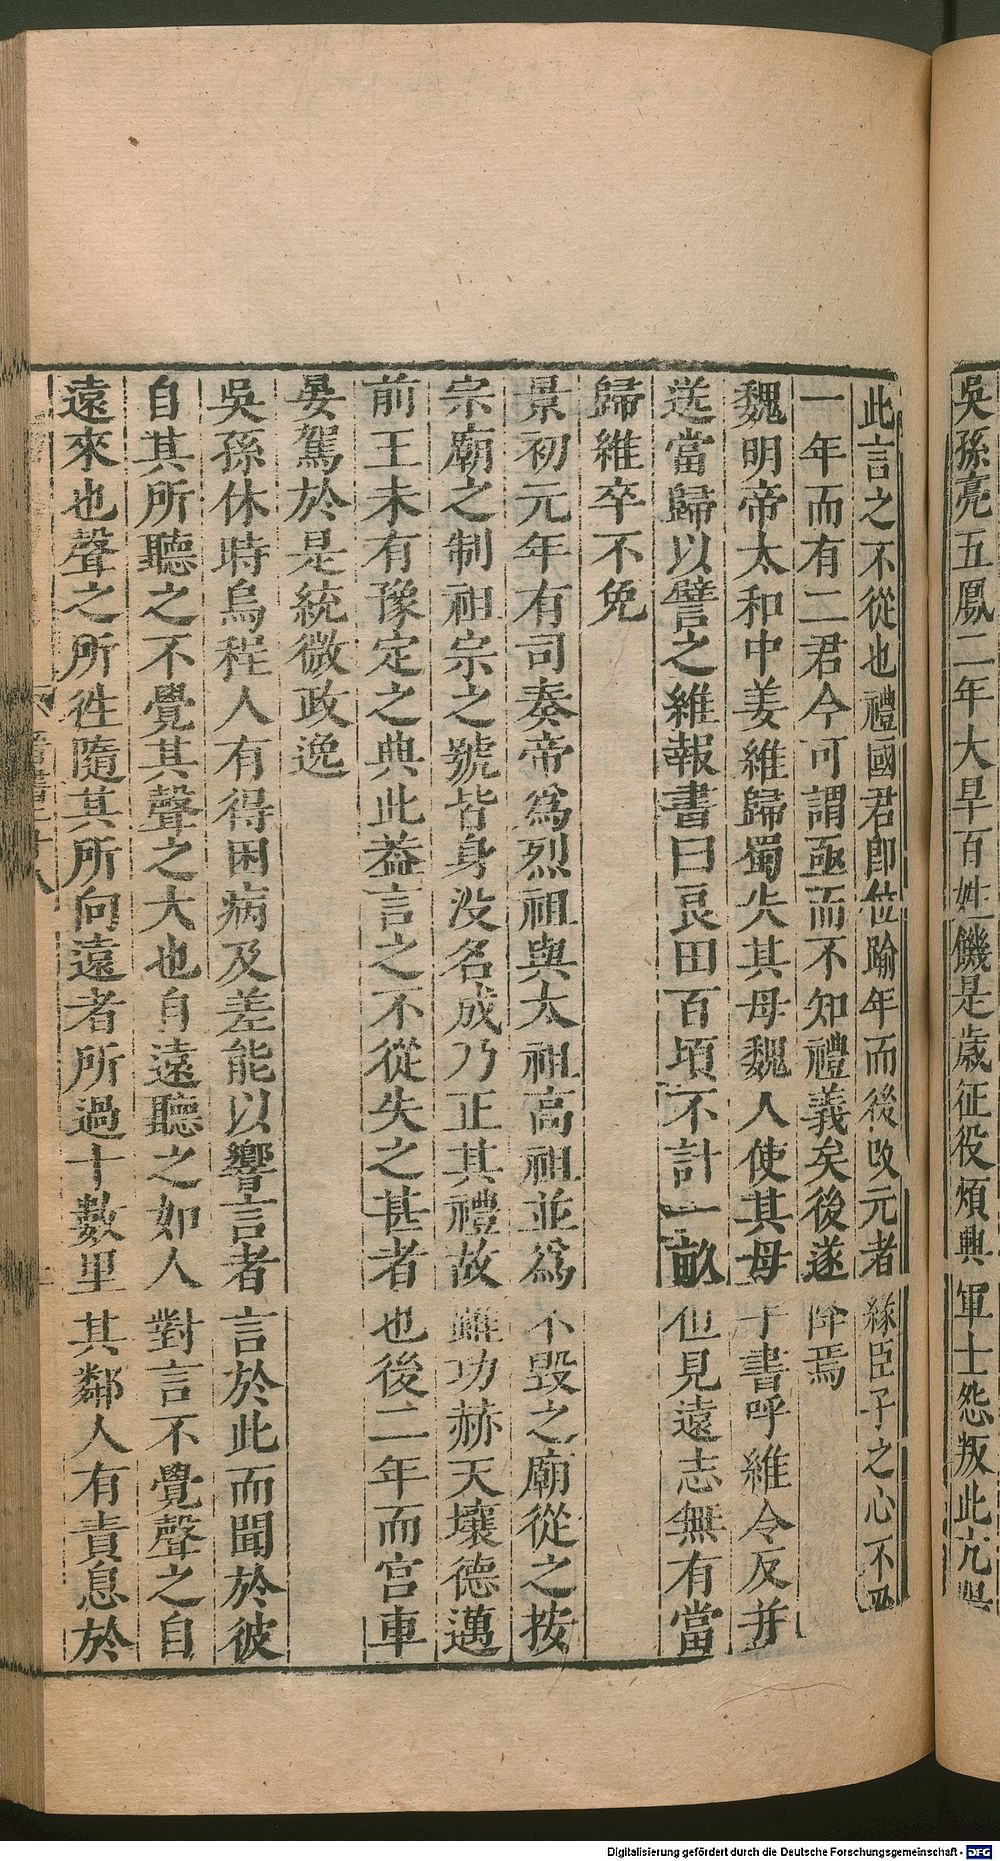 吳孫亮五鳳二年大旱百姓饑是歲征役煩興軍士怨叛此亢
此言之不從也禮國君卽位踰年而後改元者緣臣子之心不忍
一年而有二君今可謂亟而不知禮義矣後遂降焉
魏明帝太和中姜維歸蜀失其母魏人使其母手書呼維令反并
送當歸以譬之維報書曰良田百頃不計一畝但見遠志無有當
歸維卒不免
景初元年有司奏帝爲烈祖與太祖高祖並爲不毀之廟從之按
宗廟之制祖宗之號皆身没名成乃正其禮故雖功赫天壤德邁
前王未有豫定之典此葢言之不從失之甚者也後二年而宫車
晏駕於是統微政逸
吳孫休時烏程人有得困病及差能以響言者言於此而聞於彼
自其所聽之不覺其聲之大也自遠聽之如人對言不覺聲之自
遠來也聲之所徃隨其所向遠者所過十數里其鄰人有責息於
Digitalisierung gefördert durch die Deutsche Forschungsgemeinschaft - DFG